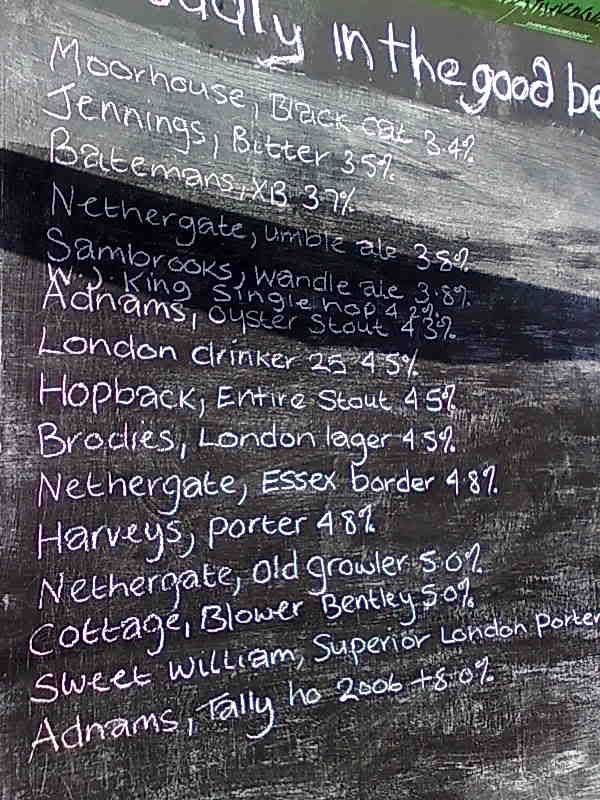 in the good
Moorhouse, Black cat 3.4%
Jennings, Bitter 3.5%
Batemans, XB 3.7%
Nethergate, umble ale 3.8%
Sambrooks, Wandle ale 3.8%
W.J. King Single hop 4.2%
Adnams, Oyster Stout 4.3%
London drinker 25 4.5%
Hopback, Entire Stout 4.5%
Brodies, London lager 4.5%
Nethergate, Essex border 4.8%
Harveys, porter 4.8%
Nethergate, Old growler 5.0%
Cottage, Blower Bentley 5.0%
Sweet William, Superior London Porter
Adnams, Tally ho 2006 +8.0%